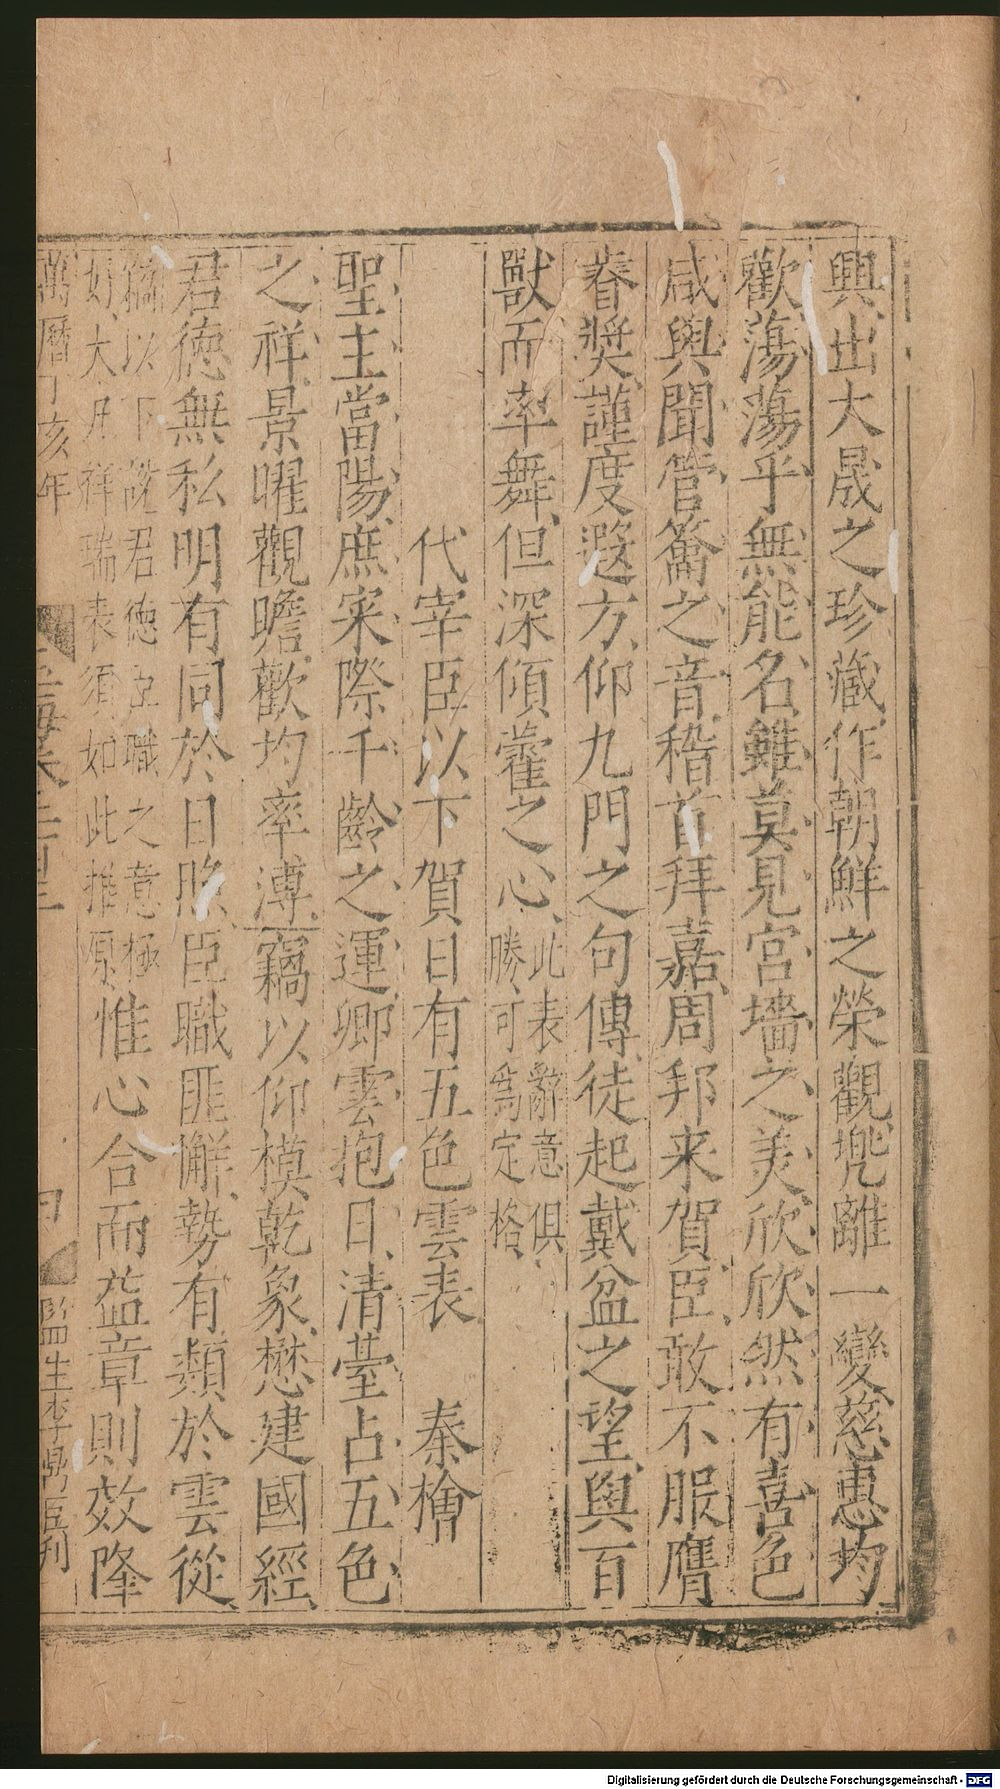 興出大晟之珍藏作朝鮮之榮觀兠離一變慈惠均
歡蕩蕩乎無能名雖莫見宮墻之美欣欣然有喜色
咸與聞管籥之音稽首拜嘉周邦来賀臣敢不服膺
眷奬謹度遐方仰九門之句傳徒起戴盆之望與百
獸而率舞但深傾藿之心此表辭意俱
勝可爲定格
代宰臣以下賀日有五色雲表 秦檜
聖主當陽庶寀際千齡之運卿雲抱日清臺占五色
之祥景曜觀瞻歡均率溥竊以仰模乾象懋建國經
君德無私明有同於日照臣職匪懈勢有類於雲從
竊以下説君德臣職之意極
好大凡祥瑞表須如此推原惟心合而益章則效隆
萬曆丁亥年
監生李鼎臣刊
Digitalisierung gefördert durch die Deutsche Forschungsgemeinschaft - DFG